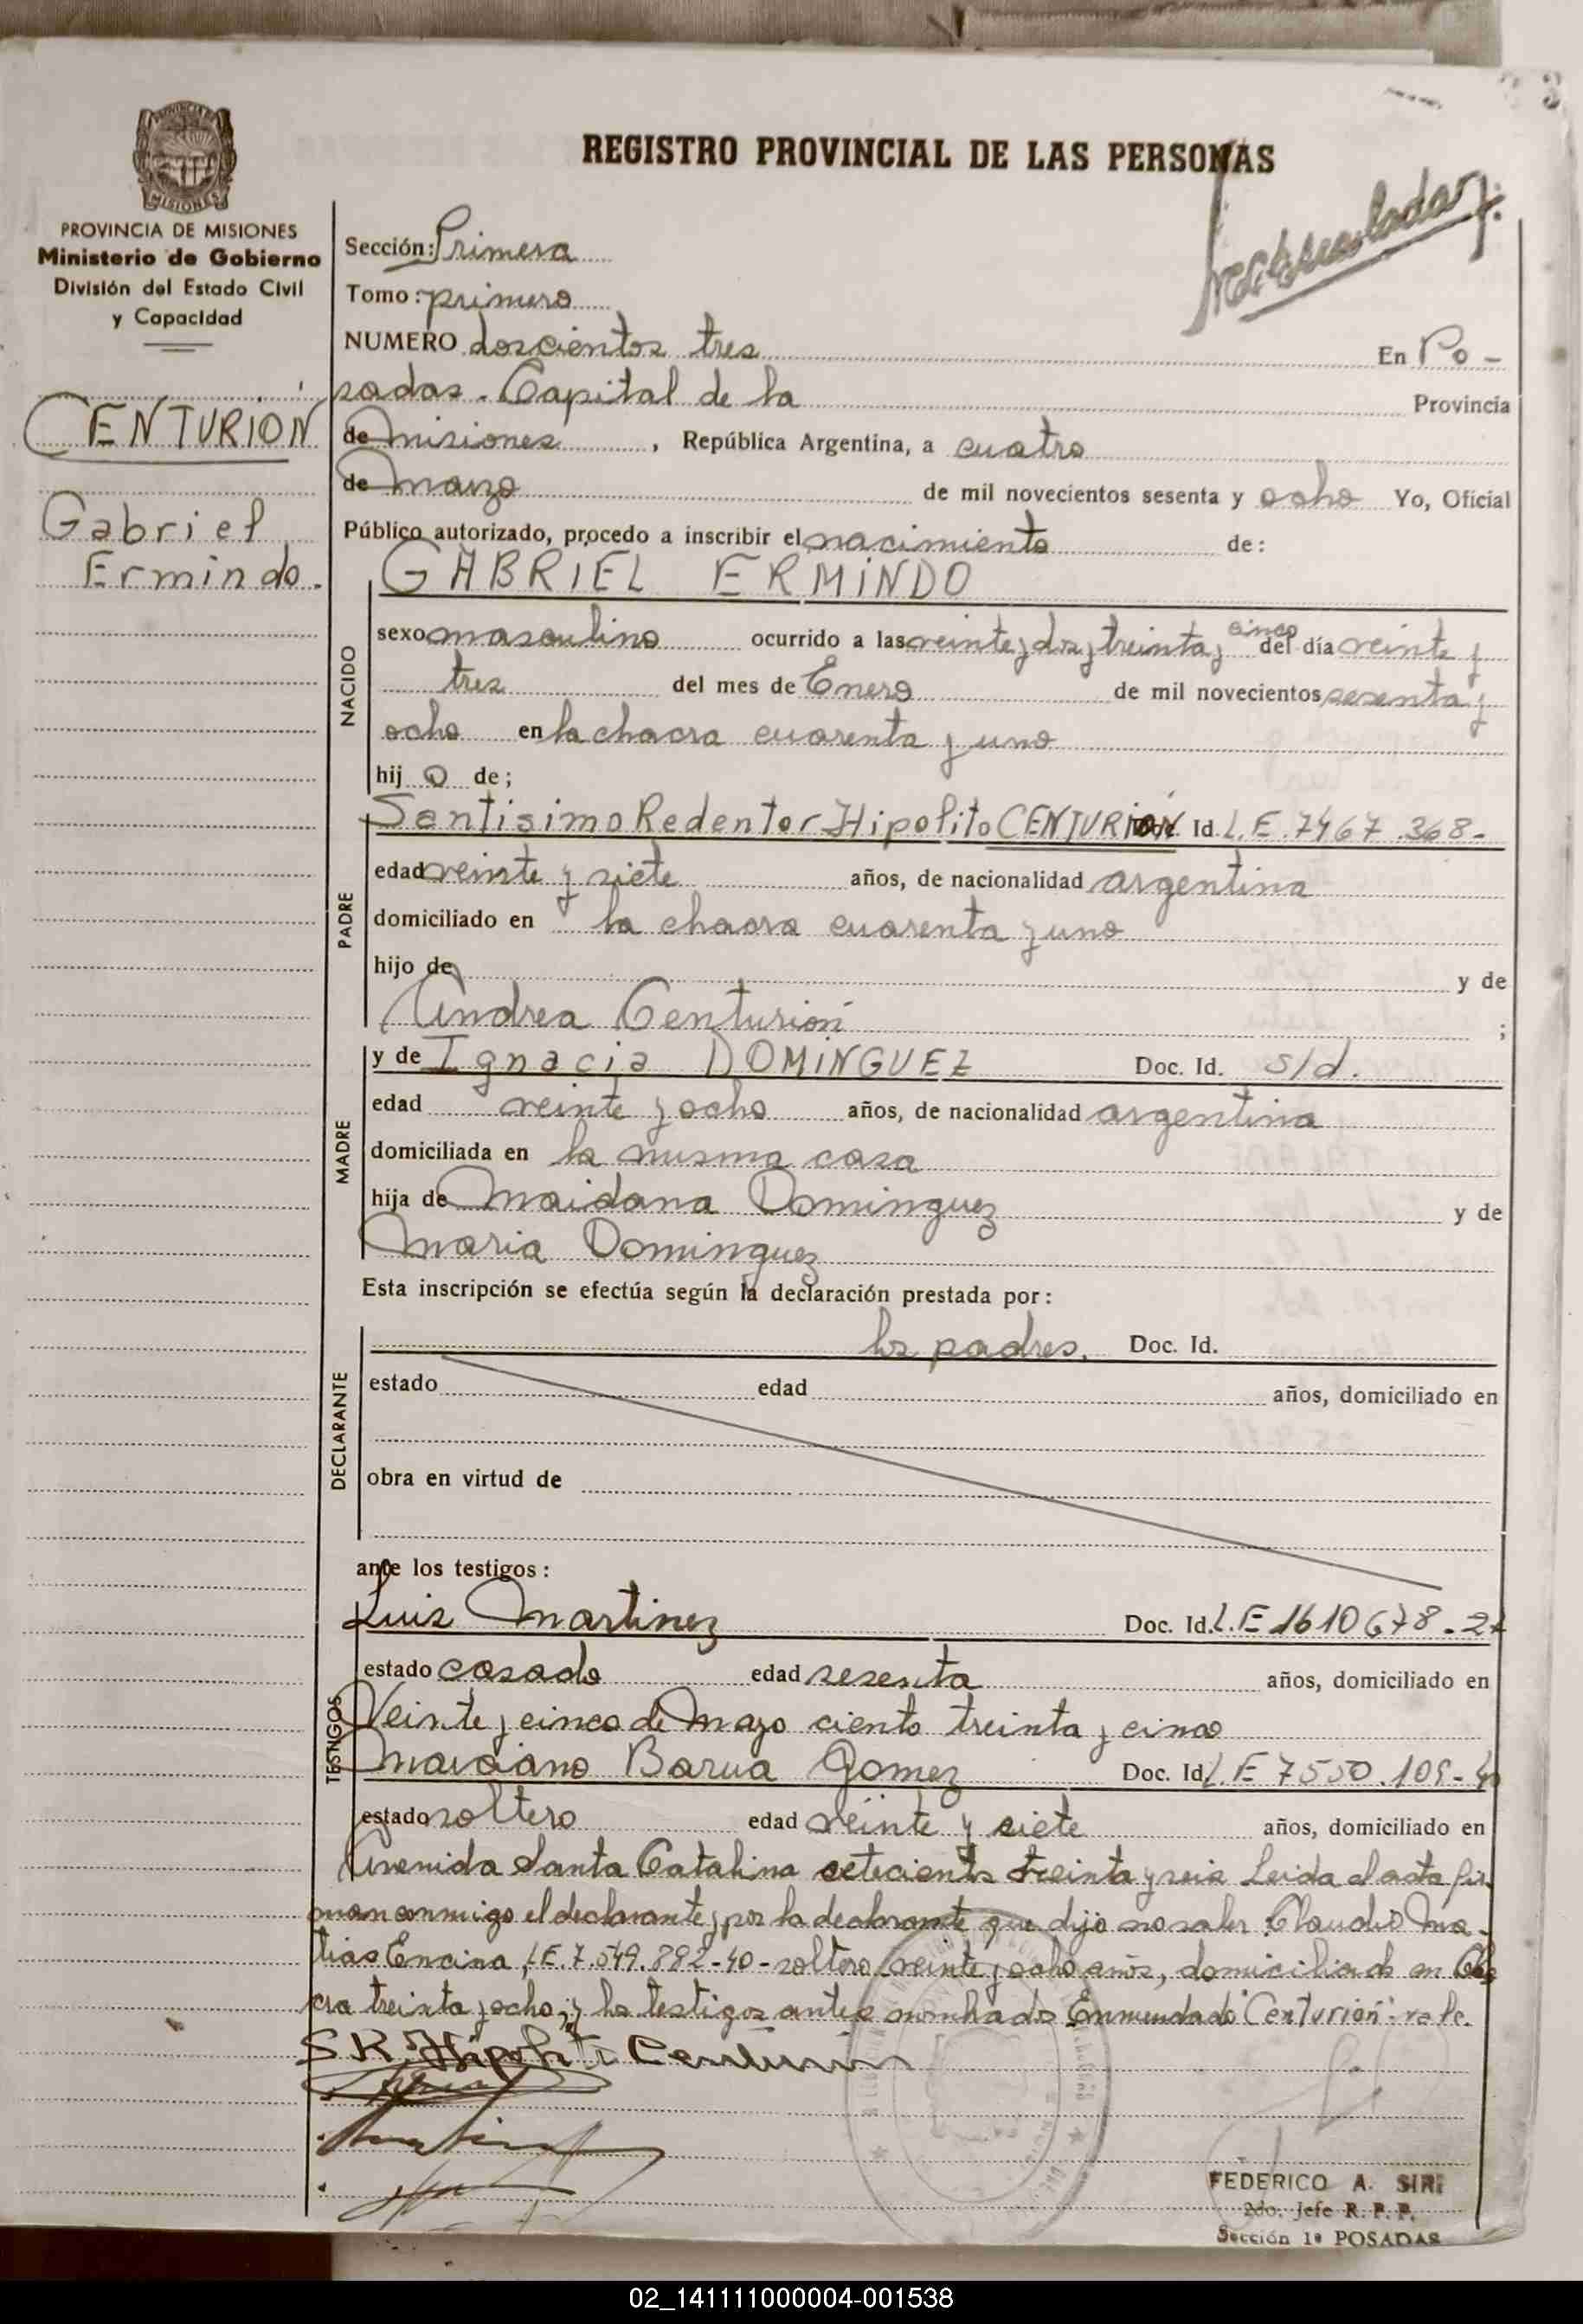 REGISTRO PROVINCIAL DE LAS PERSONAS
Matriculado
PROVINCIA DE MISIONES
Ministerio de Gobierno
División del Estado Civil
y Capacidad
CENTURIÓN
Gabriel
Ermindo.
Sección: Primera
Tomo: primero
NUMERO doscientos tres En Po-
sadas. Capital de la Provincia
de misiones, República Argentina, a cuatro
de marzo de mil novecientos sesenta y ocho Yo, Oficial
Público autorizado, procedo a inscribir el nacimiento de:
GABRIEL ERMINDO
NACIDO
sexo masculino ocurrido a las veinte y dos y treinta y cinco del día veinte y
tres del mes de Enero de mil novecientos sesenta y
ocho en la chacra cuarenta y uno
hijo de;
PADRE
Santisimo Redentor Hipolito CENTURIÓN Id. L.E. 7467.368-
edad veinte y siete años, de nacionalidad argentina
domiciliado en la chacra cuarenta y uno
hijo de y de
Andrea Centurión ;
MADRE
y de Ignacia DOMINGUEZ Doc. Id. s/d.
edad veinte y ocho años, de nacionalidad argentina
domiciliada en la misma casa
hija de Maidana Dominguez y de
Maria Dominguez
Esta inscripción se efectúa según la declaración prestada por:
DECLARANTE
los padres. Doc. Id.
estado edad años, domiciliado en
obra en virtud de
ante los testigos:
TESTIGOS
Luis Martinez Doc. Id. L.E 1610678-
estado casado edad sesenta años, domiciliado en
Veinte y cinco de Mayo ciento treinta y cinco
Marciano Barua Gomez Doc. Id. L.E 7550.109-40
estado soltero edad veinte y siete años, domiciliado en
Avenida Santa Catalina setecientos treinta y seis Leida el acta fir-
man conmigo el declarante y por la declarante que dijo no saber Claudio Ma-
tias Encina, L.E. 7.549.892-40- soltero veinte y ocho años, domiciliado en Cha
cra treinta y ocho; y los testigos antes nombrados Enmendado "Centurión" vale.
S.R. Hipolito Centurión
FEDERICO A. SIRI
2do. Jefe R. P. P.
Sección 1ª POSADAS
02_141111000004-001538